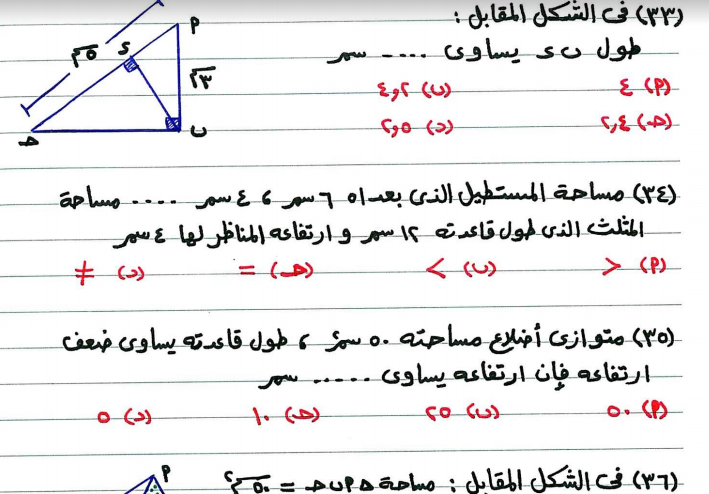 (٣٣) فى الشكل المقابل :
طول ب ء يساوى .... سم
(أ) ٤ (ب) ٤,٢
(هـ) ٢,٤ (د) ٢,٥
أ
ء
ب
حـ
٥سم
٣سم
(٣٤) مساحة المستطيل الذى بعداه ٦ سم ، ٤ سم .... مساحة
المثلث الذى طول قاعدته ١٢ سم و ارتفاعه المناظر لها ٤ سم
(أ) > (ب) < (هـ) = (د) ≠
(٣٥) متوازى أضلاع مساحته ٥٠ سم٢ ، طول قاعدته يساوى ضعف
ارتفاعه فإن ارتفاعه يساوى ..... سم
(أ) ٥٠ (ب) ٢٥ (هـ) ١٠ (د) ٥
(٣٦) فى الشكل المقابل : مساحة △ أ ب حـ = ٥٠ سم٢
أ